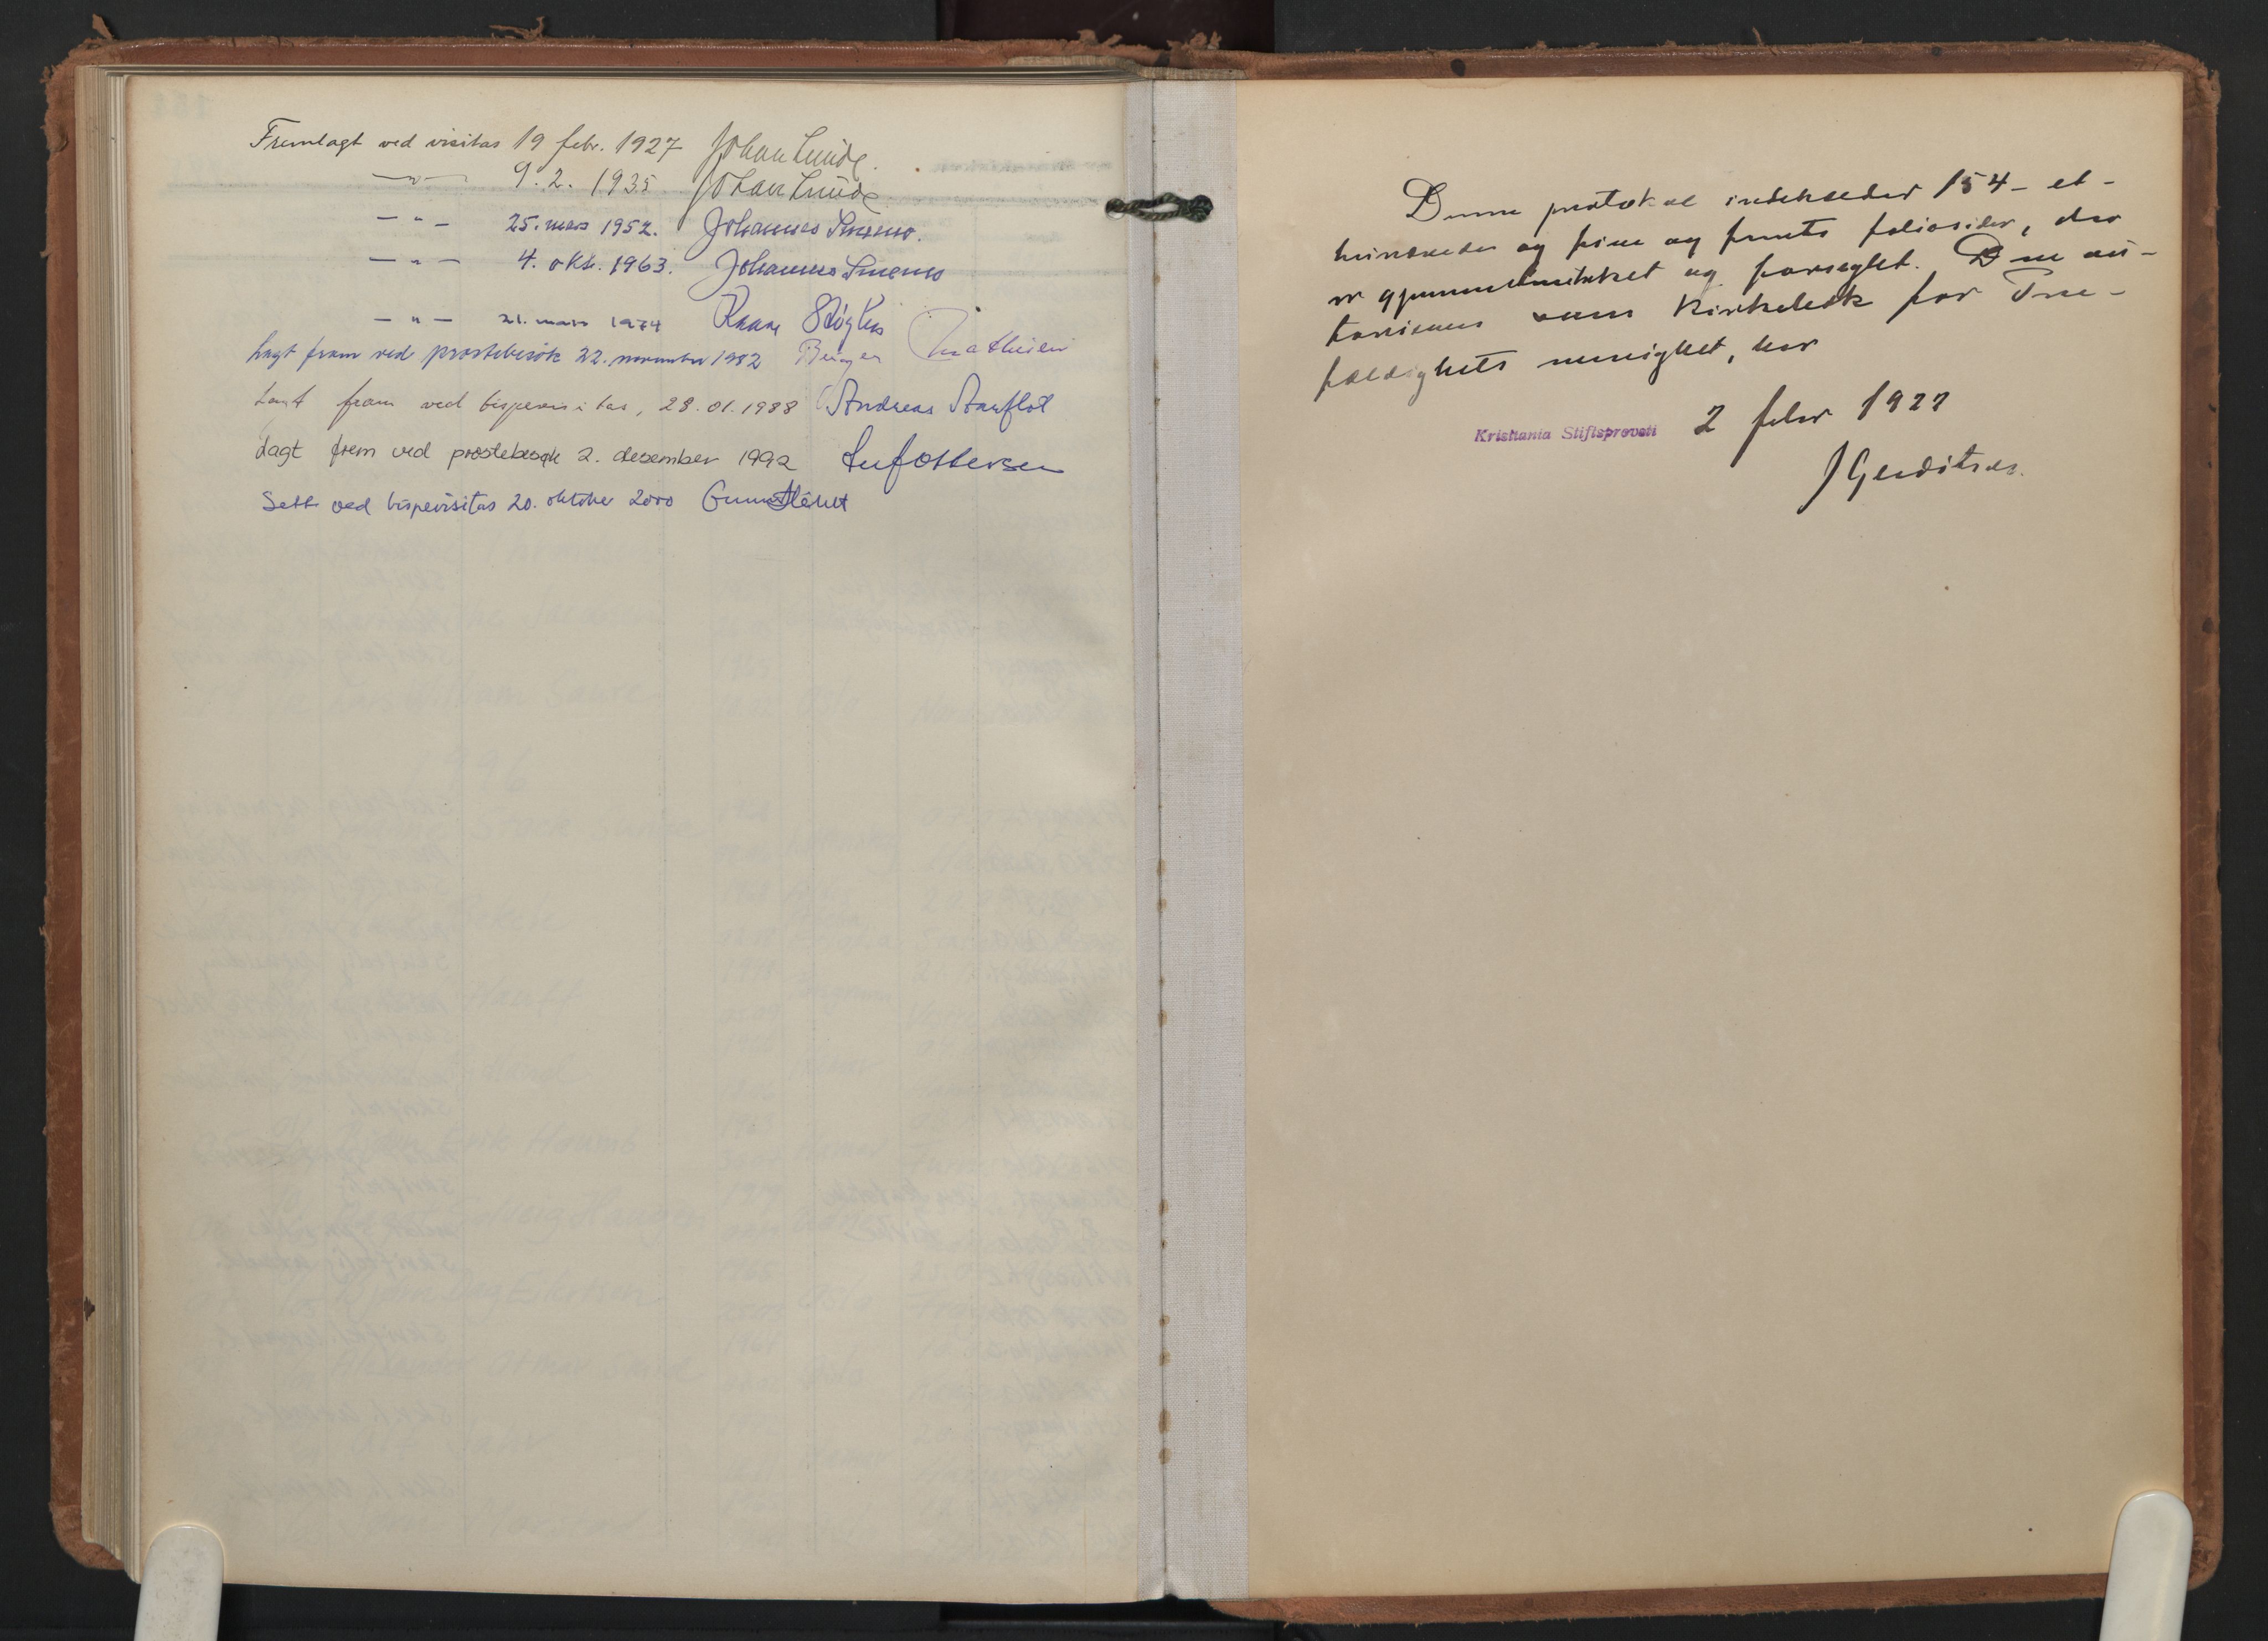 Fremlagt ved visitas 19 febr. 1927 Johan Lunde.
— " — 9. 2. 1935 Johan Lunde.
— " — 25. mars 1952. Johannes Smemo.
— " — 4. okt. 1963. Johannes Smemo
— " — 21. mars 1974 Kaare Støylen
Lagt fram ved prostebesøk 22. november 1982 Birger Mathisen
Lagt fram ved bispevisitas, 28.01.1988 Andreas Aarflot
Lagt frem ved prostebesøk 2. desember 1992
Sett ved bispevisitas 20. oktober 2000 Gunnar Stålsett
Denne protokol indeholder 154 – et –
hundrede og fire og femti foliosider, der
er gjennemtrukket og forseglet. Den au-
toriseres som Kirkebok for Tre-
foldighets menighet, her
Kristiania Stiftsprovsti 2 febr 1922